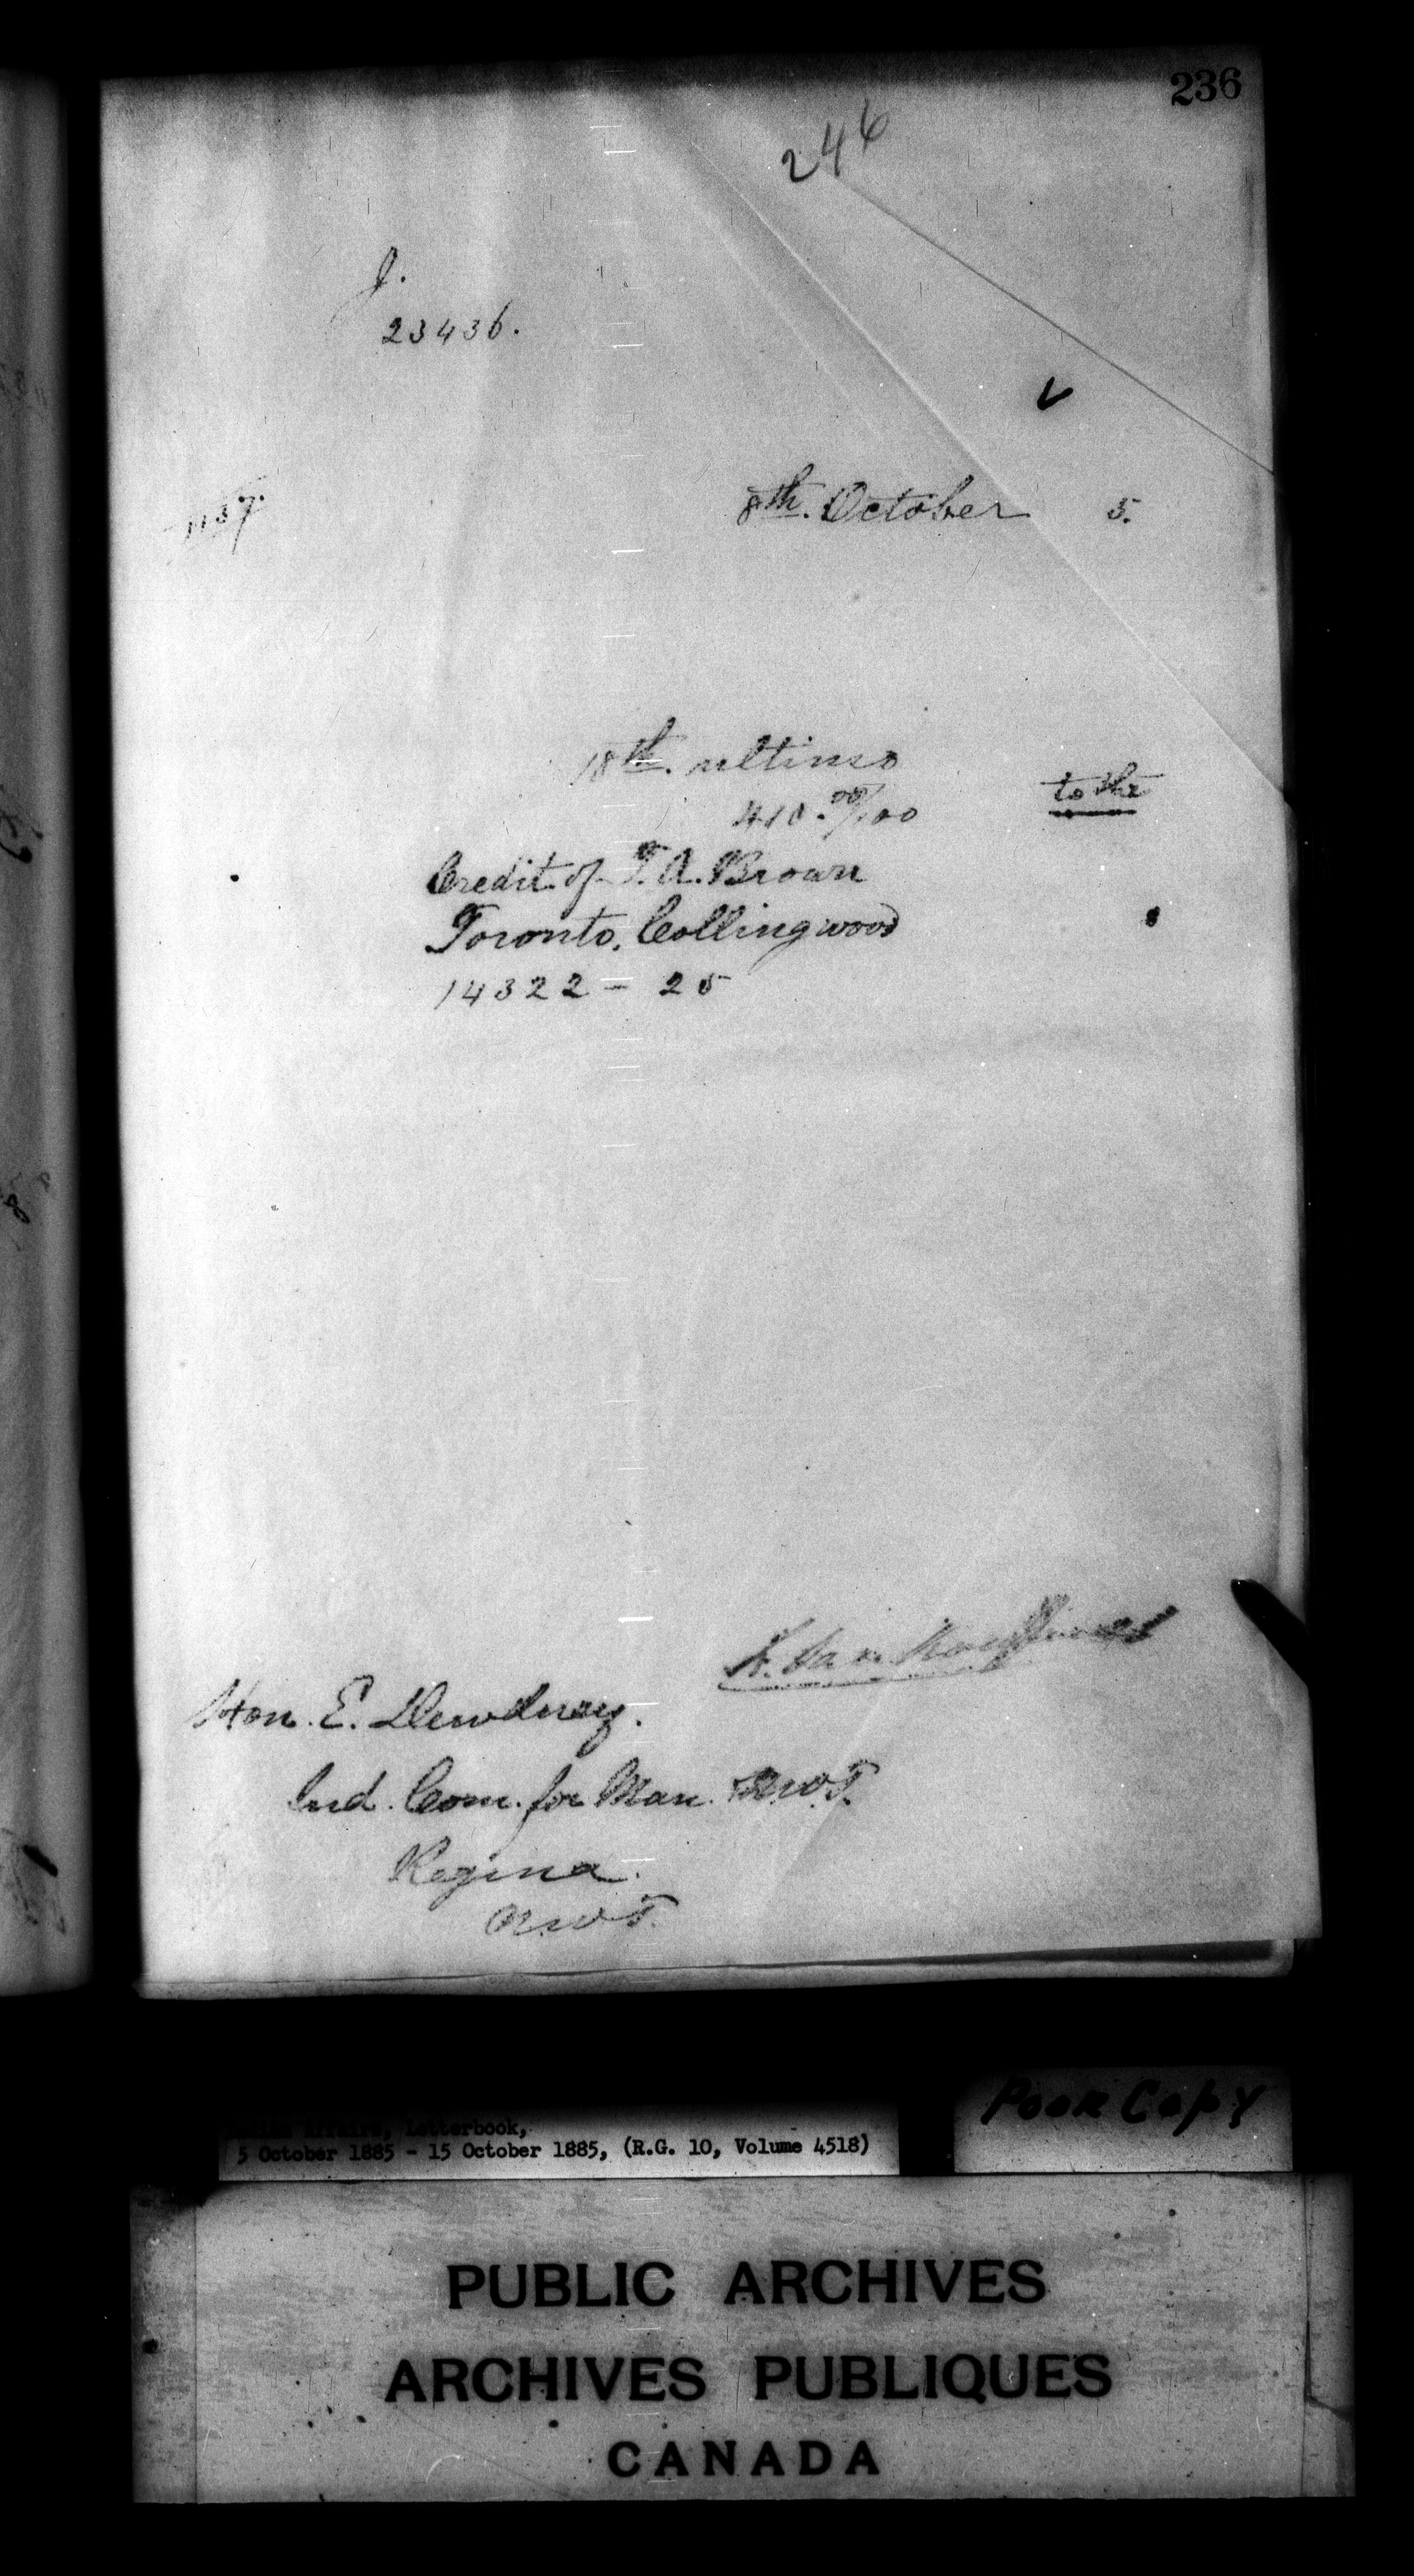 236
246
J.
23436.
1137.
8th. October 5.
18th. ultimo
410.00/100 to the
Credit of T. A. Brown
Toronto, Collingwood
14322 - 25
Hon. E. Dewdney.
Ind. Com. for Man. N.W.T.
Regina.
N.W.T.
Poor Copy
Affairs, Letterbook,
5 October 1885 - 15 October 1885, (R.G. 10, Volume 4518)
PUBLIC ARCHIVES
ARCHIVES PUBLIQUES
CANADA